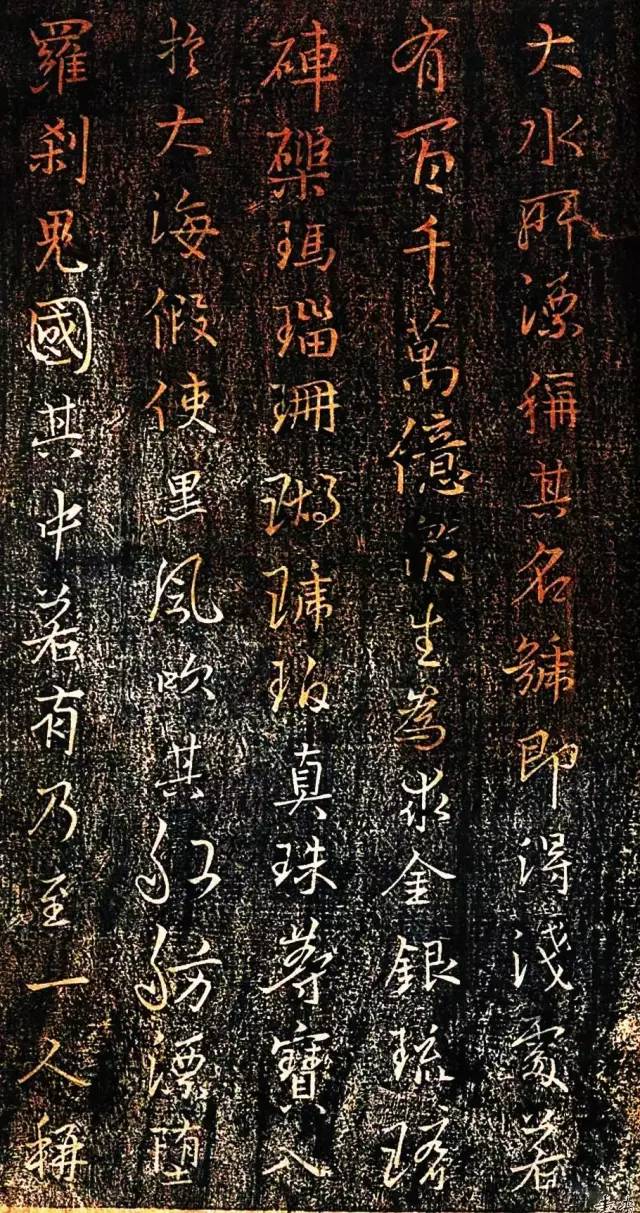 大水所漂稱其名號即得淺處若
有百千萬億眾生為求金銀琉璃
硨磲瑪瑙珊瑚琥珀真珠等寶入
於大海假使黑風吹其船舫漂堕
羅刹鬼國其中若有乃至一人稱